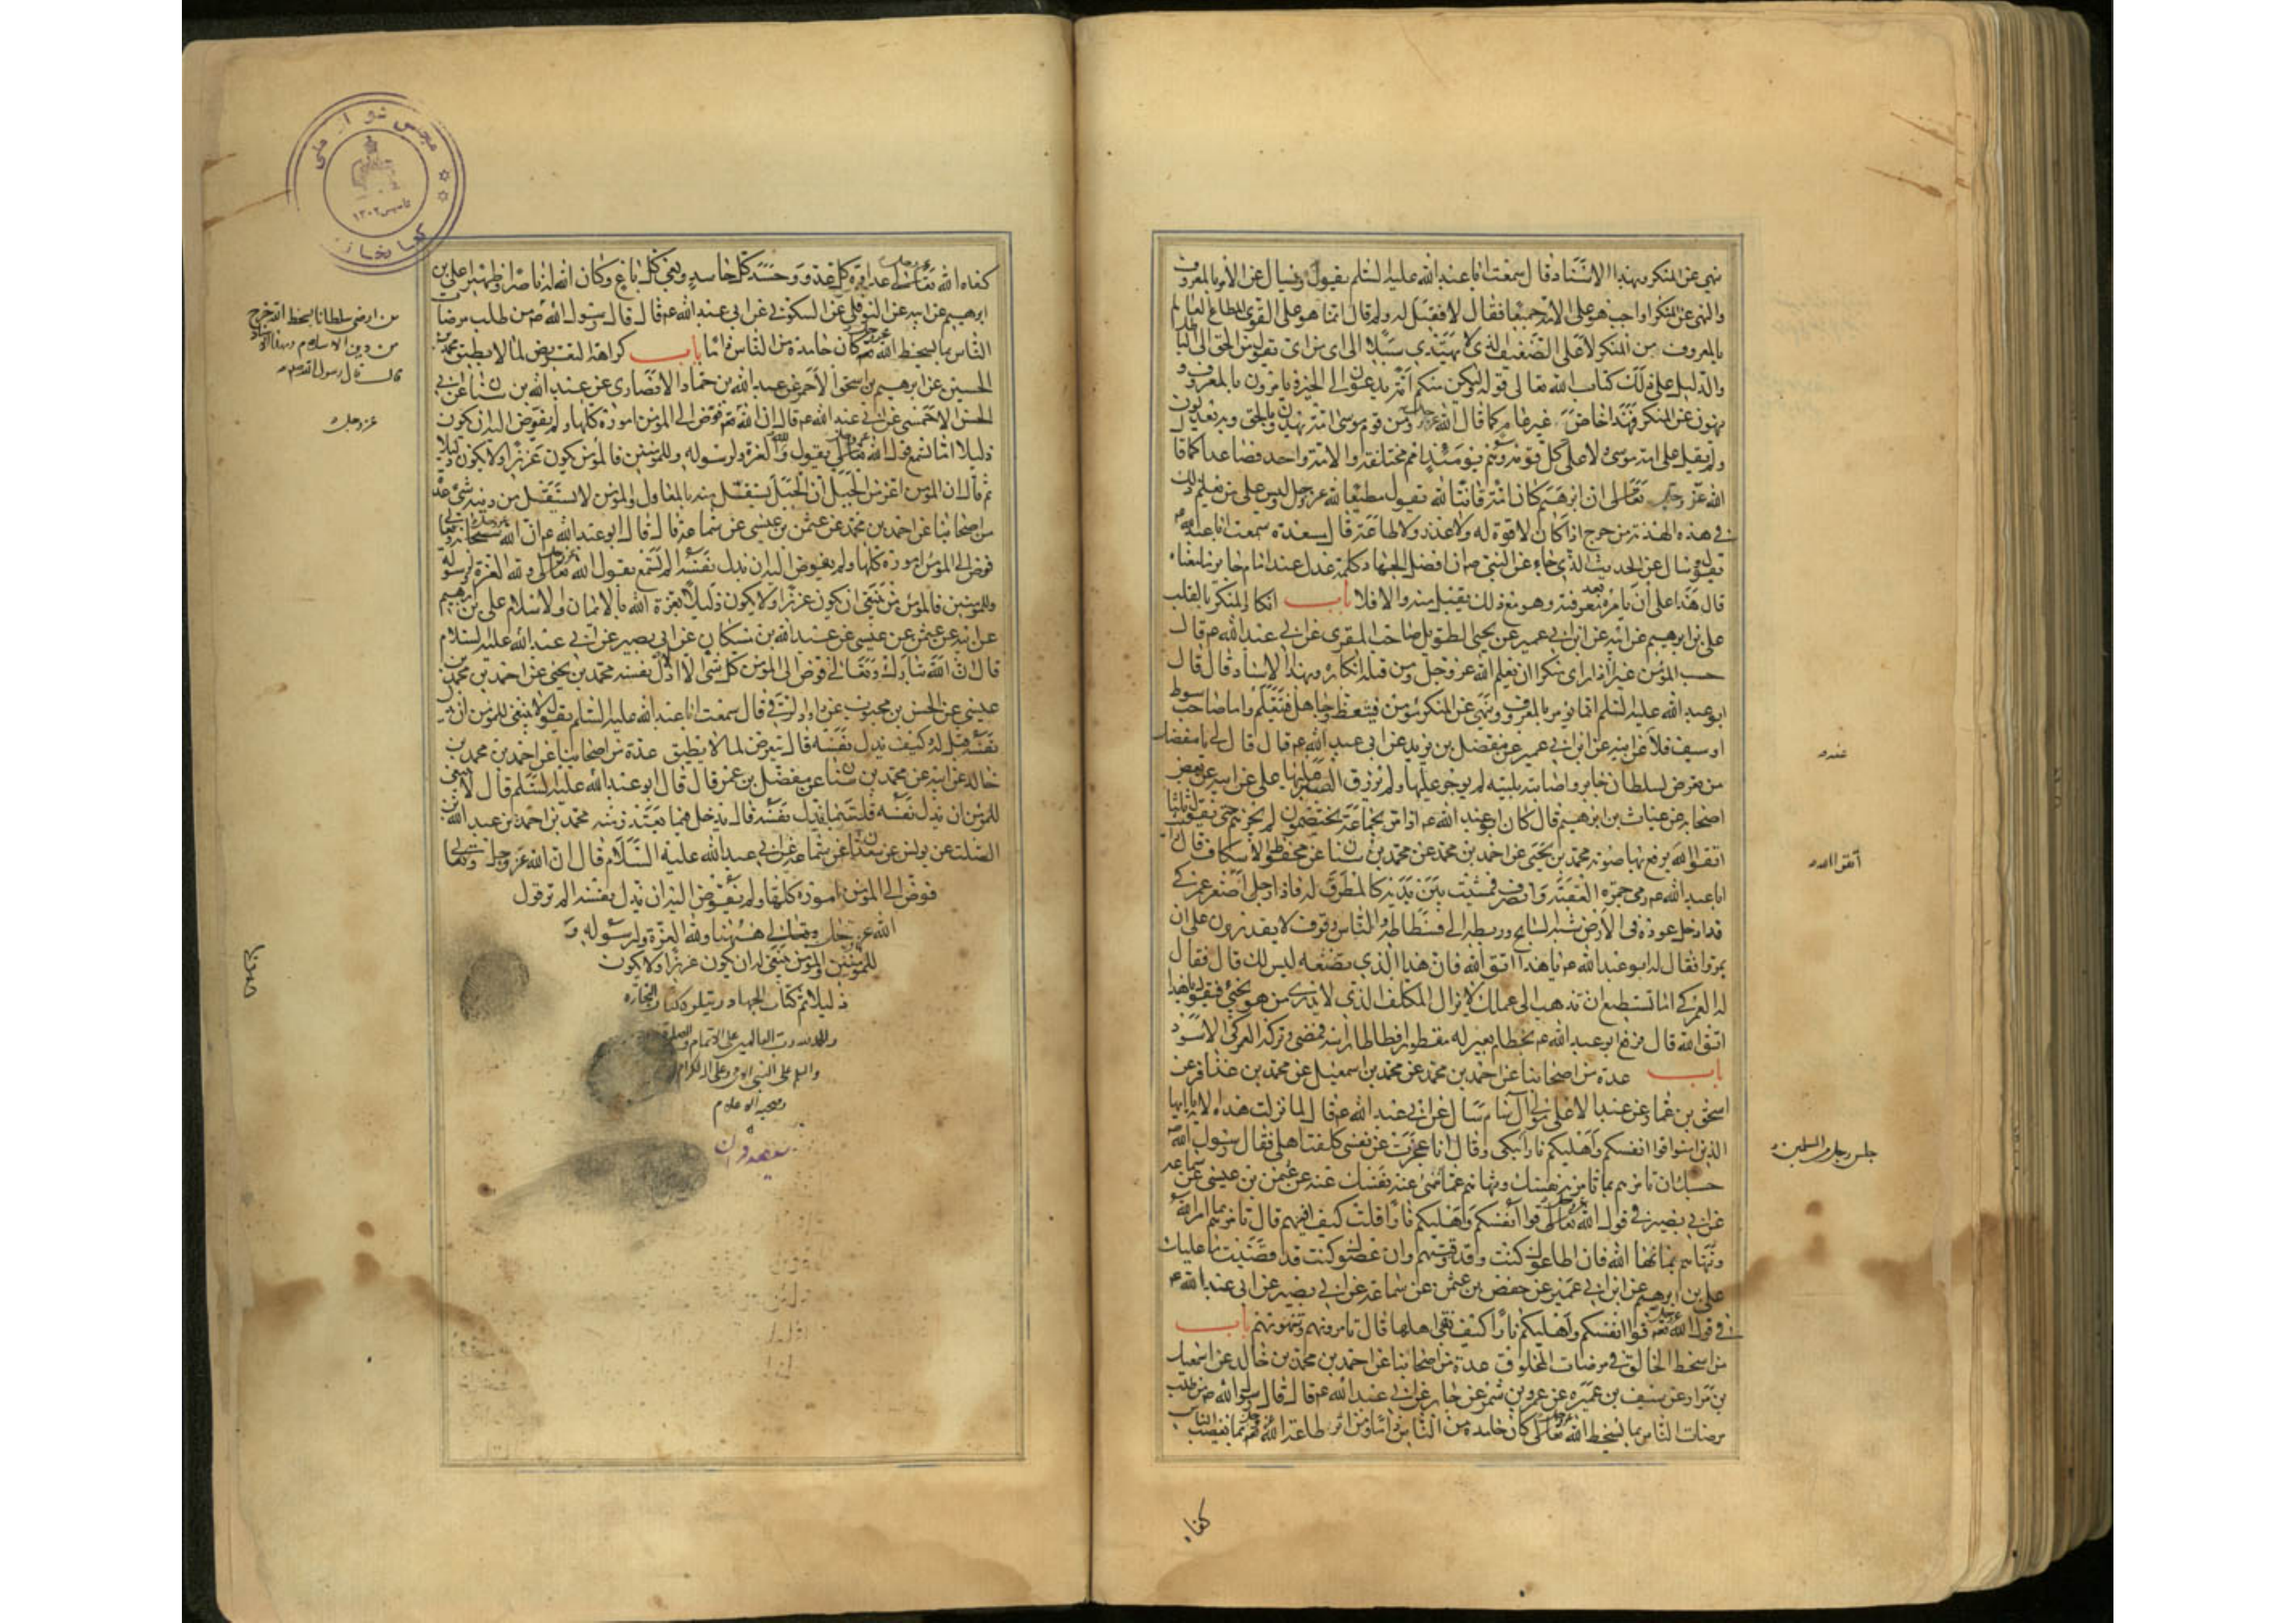 نهى عن المنكر وبهذا الاسناد قال سمعت ابا عبد الله عليه السلم يقول وسال عن الامر بالمعروف
والنهى عن المنكر اواجب هو على الامة جميعا فقال لا فقيل له ولم قال انما هو على القوى المطاع العالم
بالمعروف من المنكر لا على الضعيف الذى لا يهتدى سبيلا الى اى من اى يقول من الحق الى
والدليل على ذلك كتاب الله تعالى قوله ولتكن منكم امة يدعون الى الخير ويامرون بالمعروف و
ينهون عن المنكر فهذا خاص غير عام كما قال الله ومن قوم موسى امة يهدون بالحق وبه يعدلون
ولم يقل على امة موسى ولا على كل قومه وهم يومئذ امم مختلفة والامة واحد فصاعدا كما قال
الله عز وجل ان ابرهيم كان امة قانتا لله يقول مطيعا لله عز وجل وليس على من يعلم ذلك
فى هذه الهدنة من حرج اذا كان لا قوة له ولا عدد ولا طاعة قال مسعدة سمعت ابا عبد الله
يقول وسال عن الحديث الذى جاء عن النبى ص ان افضل الجهاد كلمة عدل عند امام جائر ما معناه
قال هذا على ان يامره بعد معرفته وهو مع ذلك يقبل منه والا فلا باب انكار المنكر بالقلب
على بن ابرهيم عن ابيه عن ابن ابى عمير عن يحيى الطويل صاحب المقرى عن ابى عبد الله ع قال
حسب المؤمن اذا راى منكرا ان يعلم الله عز وجل من قلبه انكاره وبهذا الاسناد قال قال
ابو عبد الله عليه السلم انما يؤمر بالمعروف وينهى عن المنكر مؤمن فيتعظ او جاهل فيتعلم واما صاحب سوط
او سيف فلا عن ابيه عن ابن ابى عمير عن مفضل بن يزيد عن ابى عبد الله ع قال قال لى يا مفضل
من تعرض لسلطان جاير واصابته بلية لم يوجر عليها ولم يرزق الصبر عليها على عن ابيه عن بعض
اصحابه عن غياث بن ابرهيم قال كان ابو عبد الله ع اذا مر بجماعة يختصمون لم يجزهم حتى يقول ثلثا
اتقوا الله يرفع بها صوته محمد بن يحيى عن احمد بن محمد عن محمد بن سنان عن محفوظ الاسكاف قال رايت
ابا عبد الله ع رمى جمرة العقبة وانصرف فمشيت بين يديه كالمطرق له فاذا رجل اصفر عمركى
قد ادخل عودة فى الارض شبه السابح وربطه الى فسطاطه والناس وقوف لا يقدرون على ان
يمروا فقال له ابو عبد الله ع يا هذا اتق الله فان هذا الذى تصنعه ليس لك قال فقال
له العمركى اما تستطيع ان تذهب الى عملك لا يزال المكلف الذى لا يدرى من هو يجئ فيقول يا هذا
اتق الله قال فرفع ابو عبد الله ع بخطام بعير له مقطورا فطاطا راسه فمضى وتركه العمركى الاسود
باب عدة من اصحابنا عن احمد بن محمد عن محمد بن اسمعيل عن محمد بن عذافر عن
اسحق بن عمار عن عبد الاعلى مولى آل سام عن ابى عبد الله ع قال لما نزلت هذه الاية يا ايها
الذين امنوا قوا انفسكم واهليكم نارا يبكى وقال انا عجزت عن نفسى كلفت اهلى فقال رسول الله
حسبك ان تامرهم بما تامر به نفسك وتنهاهم عما تنهى عنه نفسك عنه عن عثمن بن عيسى عن سماعة
عن ابى بصير فى قول الله قوا انفسكم واهليكم نارا قلت كيف اقيهم قال تامرهم بما امر الله
وتنهاهم بما نهاهم الله فان اطاعوك كنت قد وقيتهم وان عصوك كنت قد قضيت ما عليك
على بن ابرهيم عن ابن ابى عمير عن حفص بن عثمن عن سماعة عن ابى بصير عن ابى عبد الله ع
فى قول الله قوا انفسكم واهليكم نارا كيف نقى اهلها قال تامرونهم وتنهونهم باب
من اسخط الخالق فى مرضات المخلوق عدة من اصحابنا عن احمد بن محمد بن خالد عن اسمعيل
بن مراد عن سيف بن عميرة عن عمرو بن شمر عن جابر عن ابى عبد الله ع قال قال رسول الله ص من طلب
مرضات الناس بما يسخط الله كان حامده من الناس ذاما ومن اثر طاعة الله بما يغضب الناس
اتقوا الله
جلس رجل من المسلمين
كفاه
كفاه الله عداوة كل عدو وحسد كل حاسد وبغى كل باغ وكان الله له ناصرا وظهيرا على بن
ابرهيم عن ابيه عن النوفلى عن السكونى عن ابى عبد الله ع قال قال رسول الله ص من طلب مرضات
الناس بما يسخط الله كان حامده من الناس ذاما باب كراهة التعرض لما لا يطيق محمد بن
الحسين عن ابرهيم بن اسحق الاحمر عن عبد الله بن حماد الانصارى عن عبد الله بن سنان عن ابى
الحسن الاحمسى عن ابى عبد الله ع قال ان الله فوض الى المؤمن اموره كلها ولم يفوض اليه ان يكون
ذليلا اما تسمع قول الله يقول ولله العزة ولرسوله وللمؤمنين فالمؤمن يكون عزيزا ولا يكون ذليلا
ثم قال ان المؤمن اعز من الجبل ان الجبل يستقل منه بالمعاول والمؤمن لا يستقل من دينه شئ عدة
من اصحابنا عن احمد بن محمد عن عثمن بن عيسى عن سماعة قال قال ابو عبد الله ع ان الله
فوض الى المؤمن اموره كلها ولم يفوض اليه ان يذل نفسه الم تسمع بقول الله ولله العزة ولرسوله
وللمؤمنين فالمؤمن ينبغى ان يكون عزيزا ولا يكون ذليلا يعزه الله بالايمان والاسلام على بن ابرهيم
عن ابيه عن عثمن بن عيسى عن عبد الله بن مسكان عن ابى بصير عن ابى عبد الله عليه السلام
قال ان الله تبارك وتعالى فوض الى المؤمن كل شئ الا اذلال نفسه محمد بن يحيى عن احمد بن محمد بن
عيسى عن الحسن بن محبوب عن داود الرقى قال سمعت ابا عبد الله عليه السلم يقول لا ينبغى للمؤمن ان يذل
نفسه قيل له وكيف يذل نفسه قال يتعرض لما لا يطيق عدة من اصحابنا عن احمد بن محمد بن
خالد عن ابيه عن محمد بن سنان عن مفضل بن عمر قال قال ابو عبد الله عليه السلم قال لا ينبغى
للمؤمن ان يذل نفسه قلت بما يذل نفسه قال يدخل فيما يعتذر منه محمد بن احمد عن عبد الله بن
الصلت عن يونس عن سعدان عن سماعة عن ابى عبد الله عليه السلام قال ان الله عز وجل
فوض الى المؤمن اموره كلها ولم يفوض اليه ان يذل نفسه الم تر قول
الله عز وجل هيهنا ولله العزة ولرسوله و
للمؤمنين والمؤمن ينبغى له ان يكون عزيزا ولا يكون
ذليلا تم كتاب الجهاد ويتلوه كتاب التجارة
والحمد لله رب العالمين على الاتمام والصلوة
والسلم على النبى وعلى آله الكرام
وصحبه الاعلام
من ارضى سلطانا بسخط الله خرج
من دين الاسلام وبهذا الاسناد
قال قال رسول الله ص
عز وجل
مجلس شوراى ملى
تاسيس ١٣٠٢
كتابخانه